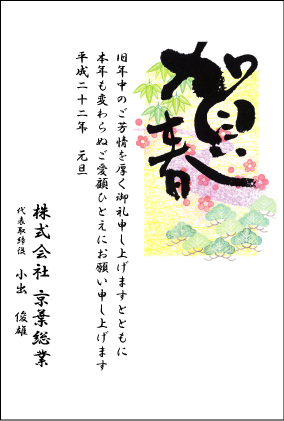 賀春
旧年中のご芳情を厚く御礼申し上げますとともに
本年も変わらぬご愛顧ひとえにお願い申し上げます
平成二十二年 元旦
株式会社 京葉総業
代表取締役 小出 俊雄